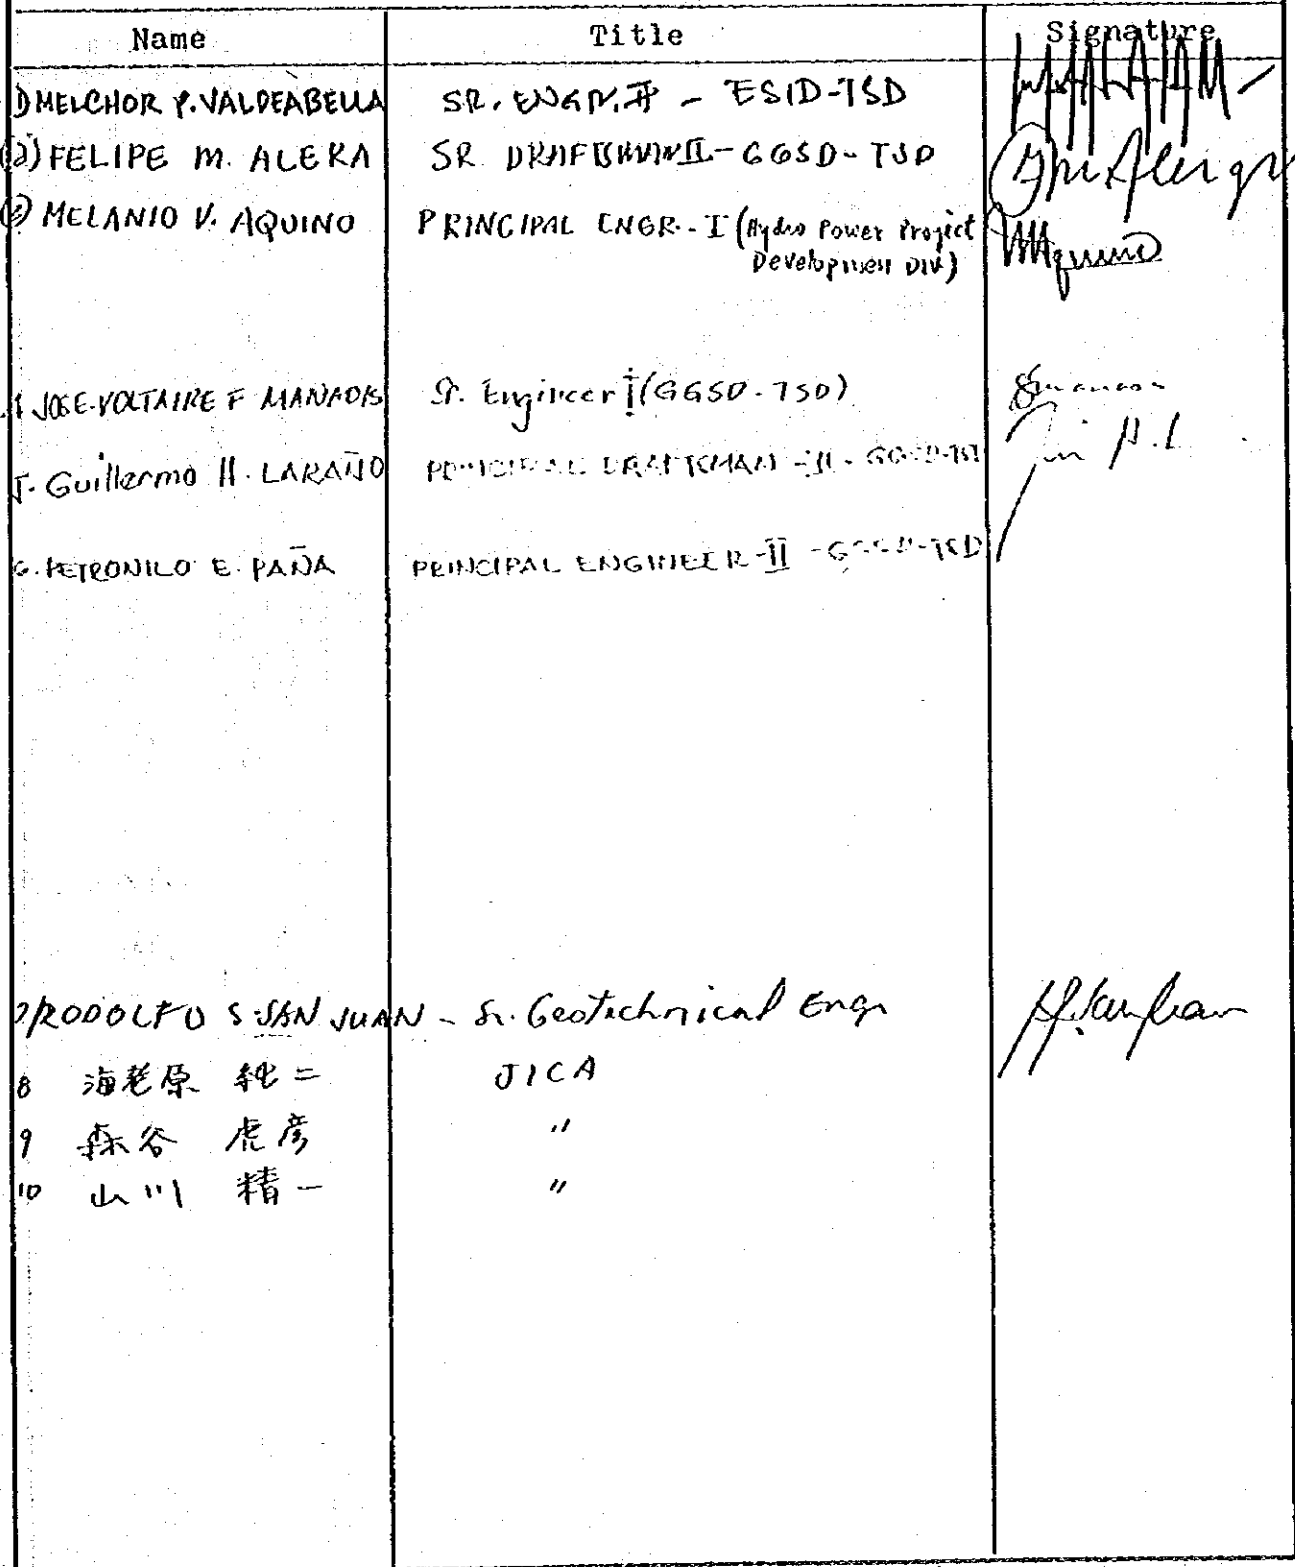 Name Title Signature
1) MELCHOR P. VALDEABELLA SR. ENGR. II - ESID-TSD
(2) FELIPE M. ALERA SR DRAFTSMAN II - GGSD-TSD
(3) MELANIO V. AQUINO PRINCIPAL ENGR. - I (Hydro Power Project
Development Div)
JOSE VOLTAIRE F Sr. Engineer I (GGSD-TSD)
5. Guillermo H. LARAÑO PRINCIPAL DRAFTSMAN - II - GGSD-TSD
6. PETRONILO E. PAÑA PRINCIPAL ENGINEER - II - GGSD-TSD
7) RODOLFO S. SAN JUAN - Sr. Geotechnical Engr
8 海老原 純二 JICA
9 森谷 虎彦 "
10 山川 精一 "